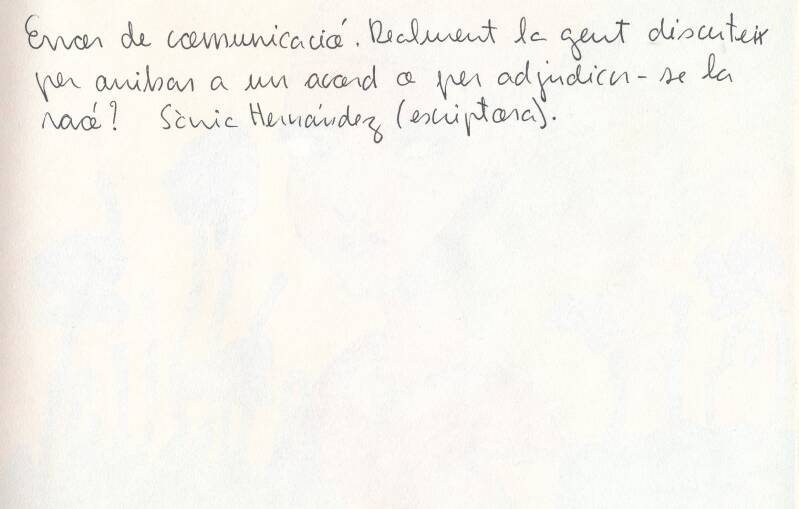 Error de comunicació. Realment la gent discuteix
per arribar a un acord o per adjudicar-se la
raó? Sònia Hernández (escriptora).